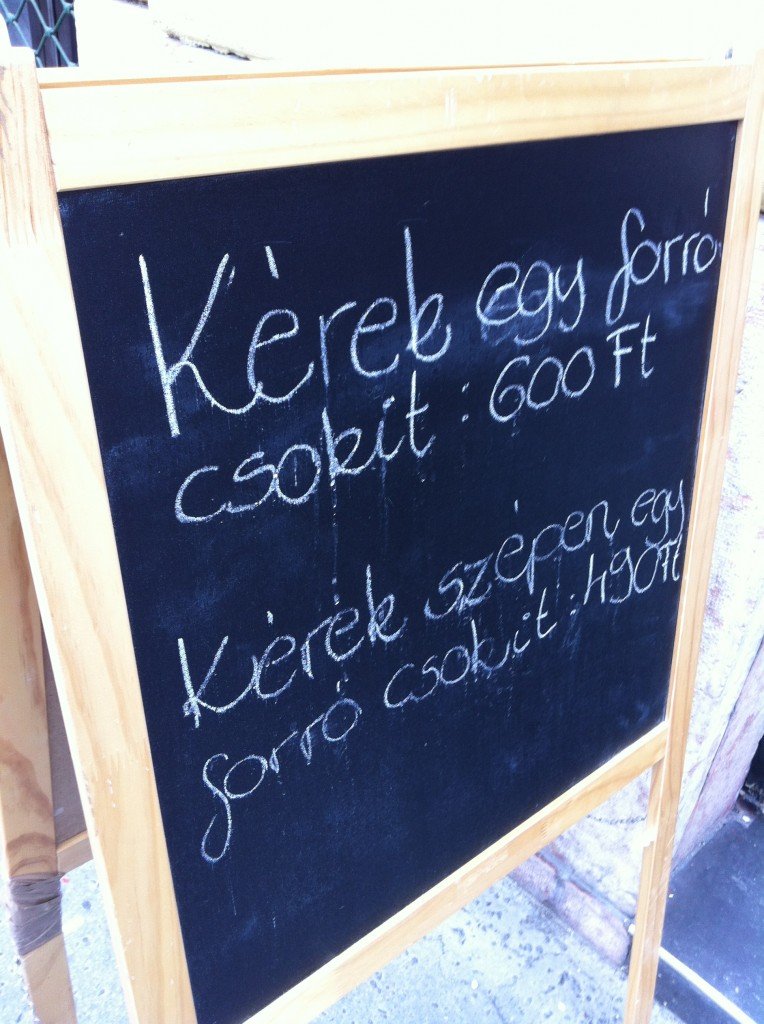 Kérek egy forró
csokit : 600 Ft
Kérék szépen egy
forró csokit : 490Ft